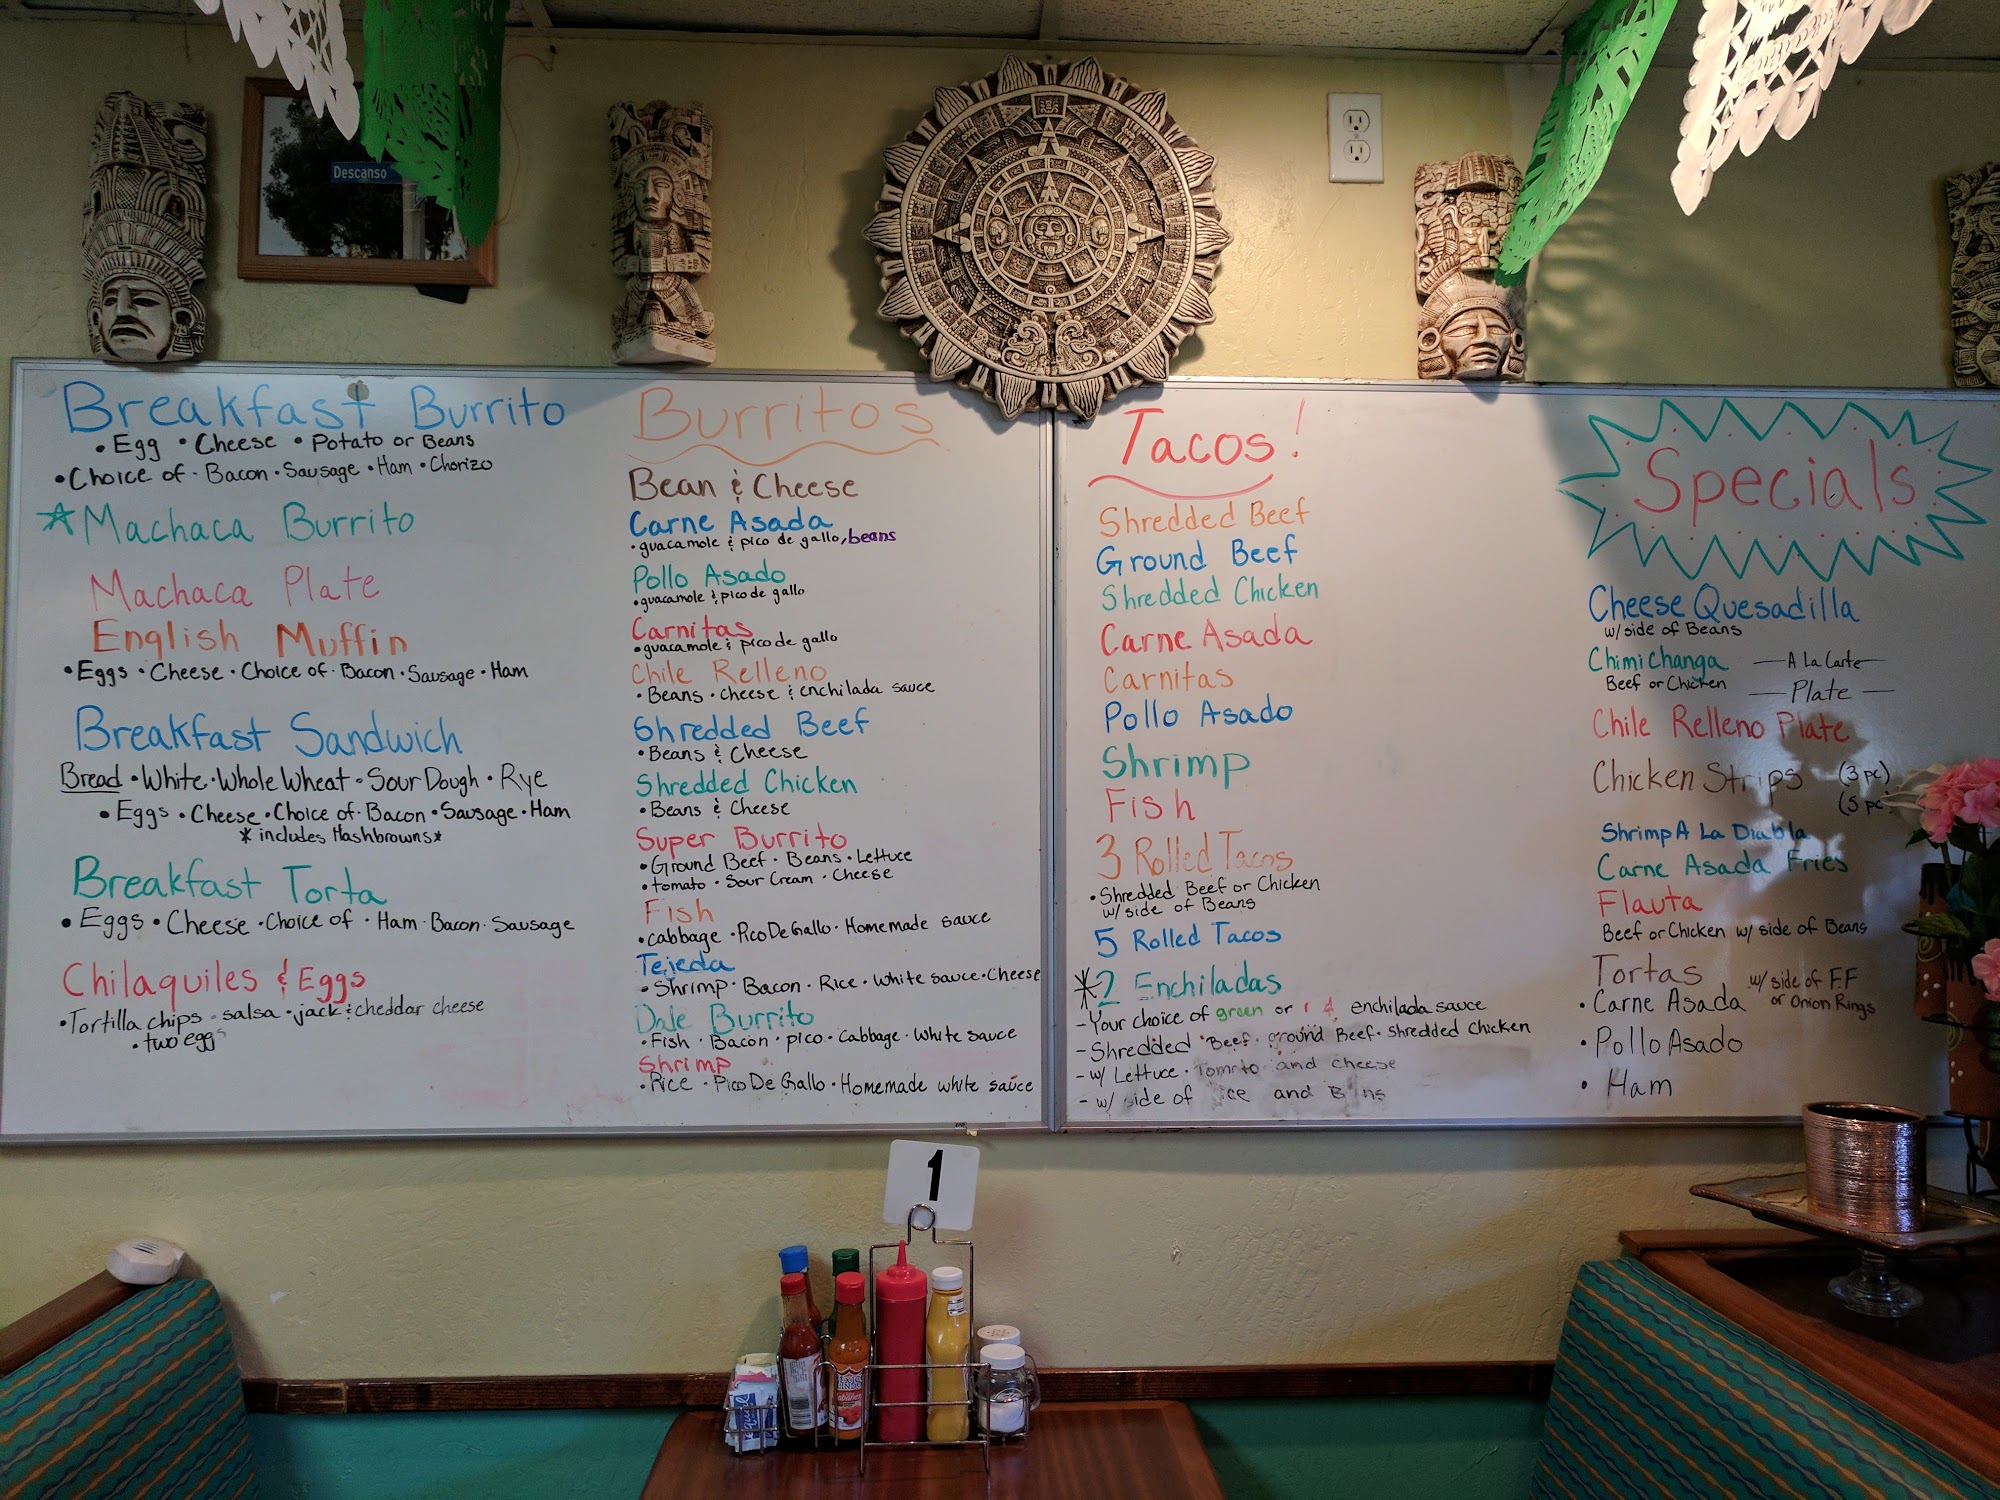 Descanso
Breakfast Burrito
• Egg • Cheese • Potato or Beans
• Choice of · Bacon · Sausage · Ham · Chorizo
Machaca Burrito
Machaca Plate
English Muffin
• Eggs • Cheese · Choice of · Bacon · Sausage · Ham
Breakfast Sandwich
Bread • White · Whole Wheat · Sour Dough · Rye
• Eggs • Cheese · Choice of · Bacon · Sausage · Ham
* includes Hashbrowns *
Breakfast Torta
• Eggs • Cheese · Choice of · Ham · Bacon · Sausage
Chilaquiles & Eggs
• Tortilla chips · salsa · jack & cheddar cheese
• two eggs
Burritos
Bean & Cheese
Carne Asada
• guacamole & pico de gallo, beans
Pollo Asado
• guacamole & pico de gallo
Carnitas
• guacamole & pico de gallo
Chile Relleno
• Beans · cheese & enchilada sauce
Shredded Beef
• Beans & Cheese
Shredded Chicken
• Beans & Cheese
Super Burrito
• Ground Beef · Beans · Lettuce
• tomato · Sour Cream · Cheese
Fish
• cabbage · Pico De Gallo · Homemade sauce
Tejeda
• Shrimp · Bacon · Rice · White sauce · Cheese
Dale Burrito
• Fish · Bacon · pico · Cabbage · White sauce
Shrimp
• Rice · Pico De Gallo · Homemade white sauce
Tacos!
Shredded Beef
Ground Beef
Shredded Chicken
Carne Asada
Carnitas
Pollo Asado
Shrimp
Fish
3 Rolled Tacos
• Shredded Beef or Chicken
w/ side of Beans
5 Rolled Tacos
*2 Enchiladas
- Your choice of green or enchilada sauce
- Shredded Beef · ground Beef · Shredded Chicken
- w/ Lettuce · Tomato and cheese
- w/ side of and
Specials
Cheese Quesadilla
w/ side of Beans
Chimichanga — A La Carte —
Beef or Chicken — Plate —
Chile Relleno Plate
Chicken Strips (3 pc)
(5 pc
Shrimp A La Diabla
Carne Asada Fries
Flauta
Beef or Chicken w/ side of Beans
Tortas w/ side of F.F
• Carne Asada or Onion Rings
• Pollo Asado
• Ham
1